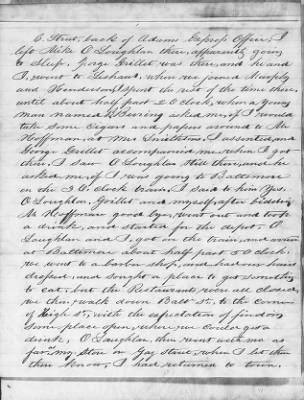 C Street, back of Adams Express Office. I
left Mike O'Loughlan there, apparently going
to Sleep. George Grillet was there, and he and
I, went to Lichaus, where we joined Murphy
and Henderson, & spent the rest of the time there,
until about half past 2 O'Clock, when a young
man named Bersing asked me, if I would
take some Cigars and papers around to Mr
Hoffman, at Mrs. Smithson. I assented, and
George Grillet accompanied me, when I got
there, I saw O'Loughlan still there, and he
asked me, if I was going to Baltimore
in the 3 O. clock train, I said to him Yes.
O'Loughlan, Grillet and myself, after bidding
Mr Hoffman good bye, went out and took
a drink, and started for the depot. O'
Loughlan and I, got on the train, and arrived
at Baltimore about half past 5 O'clock.
we went to a barber shop, and had our hair
dressed, and sought a place to get something
to eat, but the Restaurants were all closed,
we then walk down Balto St., to the corner
of High St, with the expectation of finding
Some place open, where we could get a
drink. O'Laughlan, then went with me as
far as my Store on Gay Street, where I let them
know, I had returned to town.